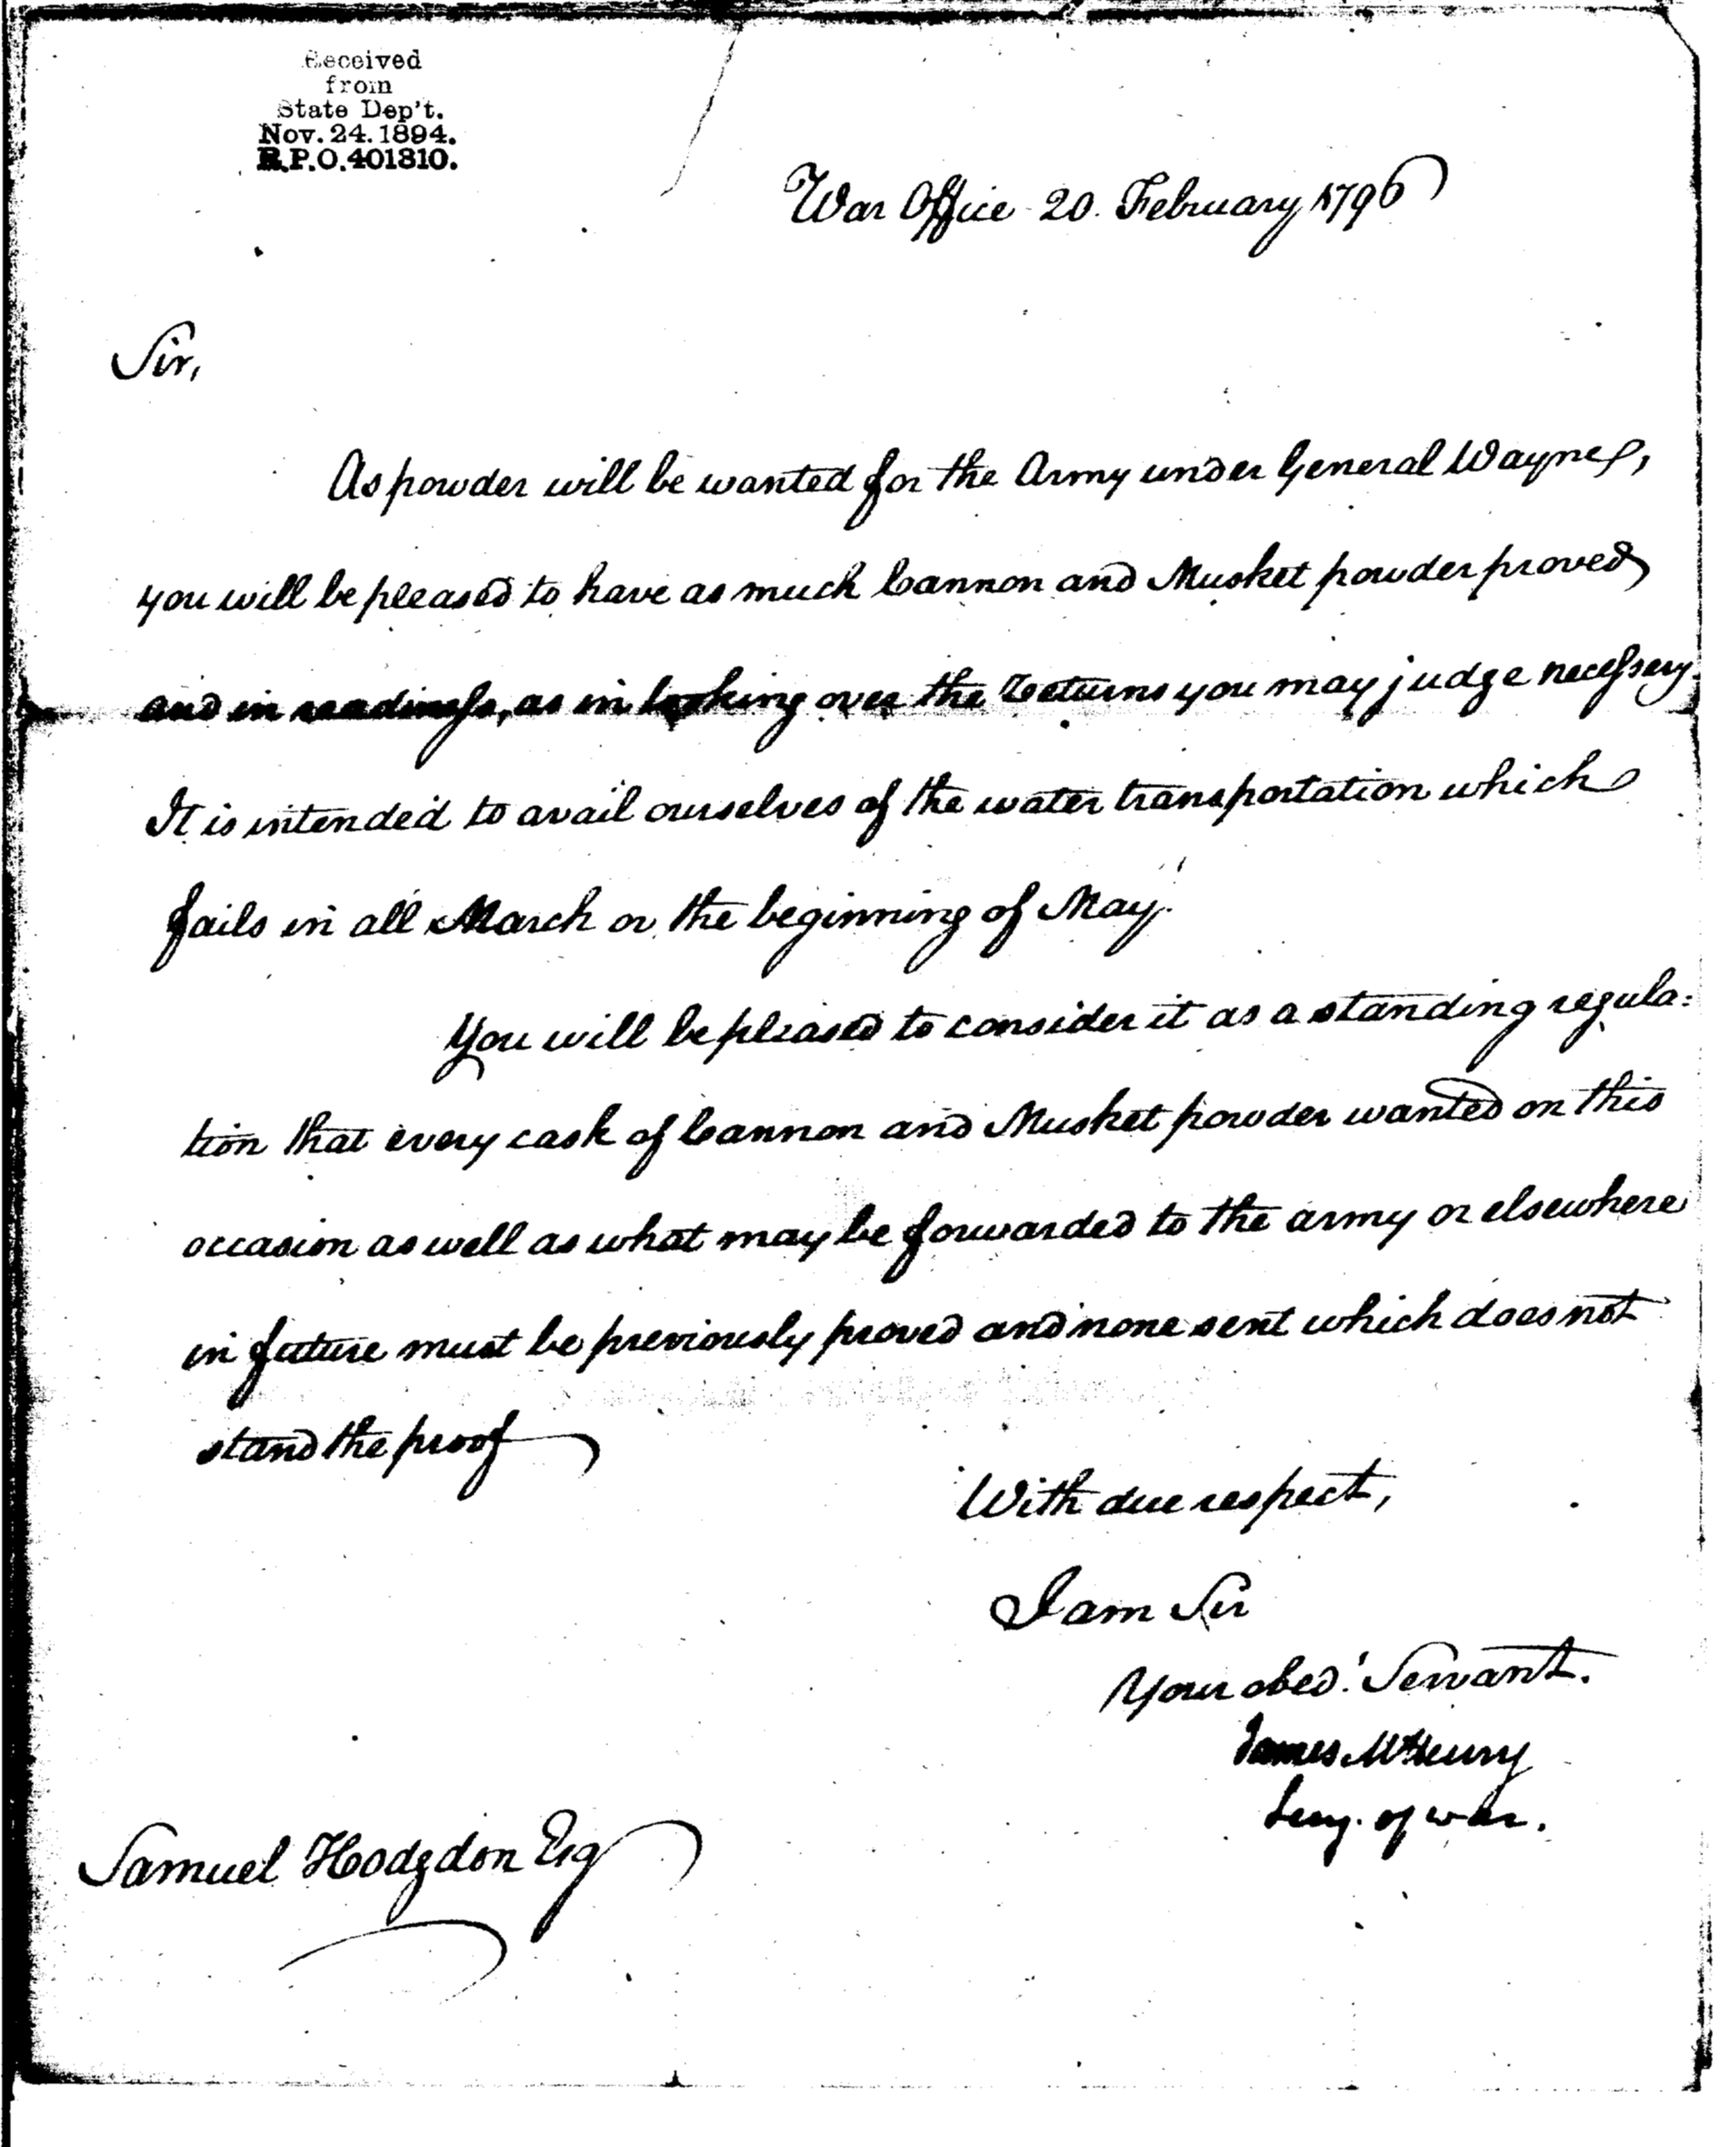 Received
from
State Dep't.
Nov. 24. 1894.
R.P.O. 401810.
War Office 20. February 1796
Sir,
As powder will be wanted for the Army under General Wayne,
you will be pleased to have as much Cannon and Musket powder proved
and in readiness, as in looking over the returns you may judge necessary.
It is intended to avail ourselves of the water transportation which
fails in all March or the beginning of May.
You will be pleased to consider it as a standing regula=
tion that every cask of Cannon and Musket powder wanted on this
occasion as well as what may be forwarded to the army or elsewhere
in future must be previously proved and none sent which does not
stand the proof
With due respect,
I am Sir
Your obed.t Servant.
James McHenry
Secy. of war.
Samuel Hodgdon Esq